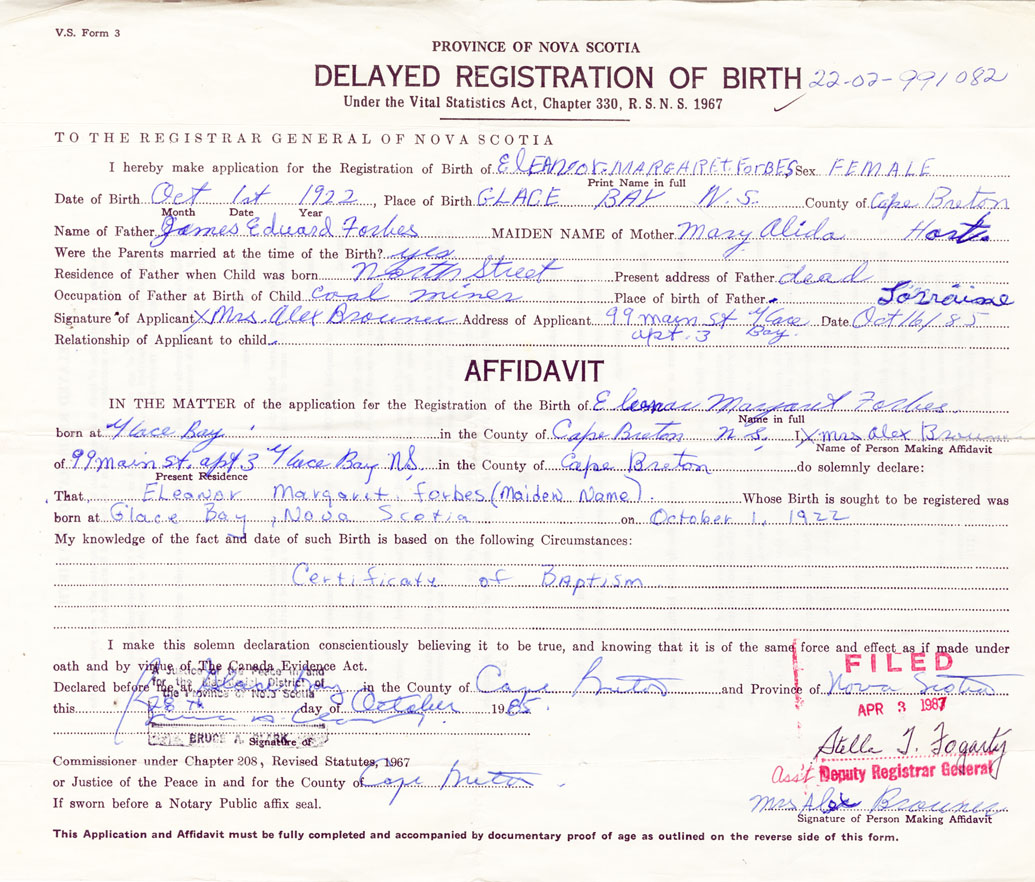 V.S. Form 3
PROVINCE OF NOVA SCOTIA
DELAYED REGISTRATION OF BIRTH 22-02-991082
Under the Vital Statistics Act, Chapter 330, R. S. N. S. 1967
TO THE REGISTRAR GENERAL OF NOVA SCOTIA
I hereby make application for the Registration of Birth of ElEANOR MARGARET FORBES Sex FEMALE
Print Name in full
Date of Birth Oct 1st 1922, Place of Birth GLACE BAY N.S. County of Cape Breton
Month Date Year
Name of Father James Edward Forbes MAIDEN NAME of Mother Mary Alida
Were the Parents married at the time of the Birth? yes
Residence of Father when Child was born North Street Present address of Father dead
Occupation of Father at Birth of Child coal miner Place of birth of Father Lorraine
Signature of Applicant X Mrs. Alex Address of Applicant 99 main st Glace Date Oct 16/85
apt. 3 Bay.
Relationship of Applicant to child
AFFIDAVIT
IN THE MATTER of the application for the Registration of the Birth of Eleanor Margaret Forbes
Name in full
born at Glace Bay in the County of Cape Breton N.S. I, X mrs alex
Name of Person Making Affidavit
of 99 main st. apt 3 Glace Bay NS in the County of Cape Breton do solemnly declare:
Present Residence
That Eleanor Margaret. Forbes (Maiden Name). Whose Birth is sought to be registered was
born at Glace Bay, Nova Scotia on October 1, 1922
My knowledge of the fact and date of such Birth is based on the following Circumstances:
Certificate of Baptism
I make this solemn declaration conscientiously believing it to be true, and knowing that it is of the same force and effect as if made under
oath and by virtue of The Canada Evidence Act.
FILED
Declared before me at Glace Bay in the County of Cape Breton and Province of Nova Scotia
this 28th day of October 1985.
APR 3 1987
BRUCE A. CLARK
Signature of
Stella T. Fogarty
Commissioner under Chapter 208, Revised Statutes, 1967
Ass't Deputy Registrar General
or Justice of the Peace in and for the County of Cape Breton
If sworn before a Notary Public affix seal.
Mrs Alex
Signature of Person Making Affidavit
This Application and Affidavit must be fully completed and accompanied by documentary proof of age as outlined on the reverse side of this form.